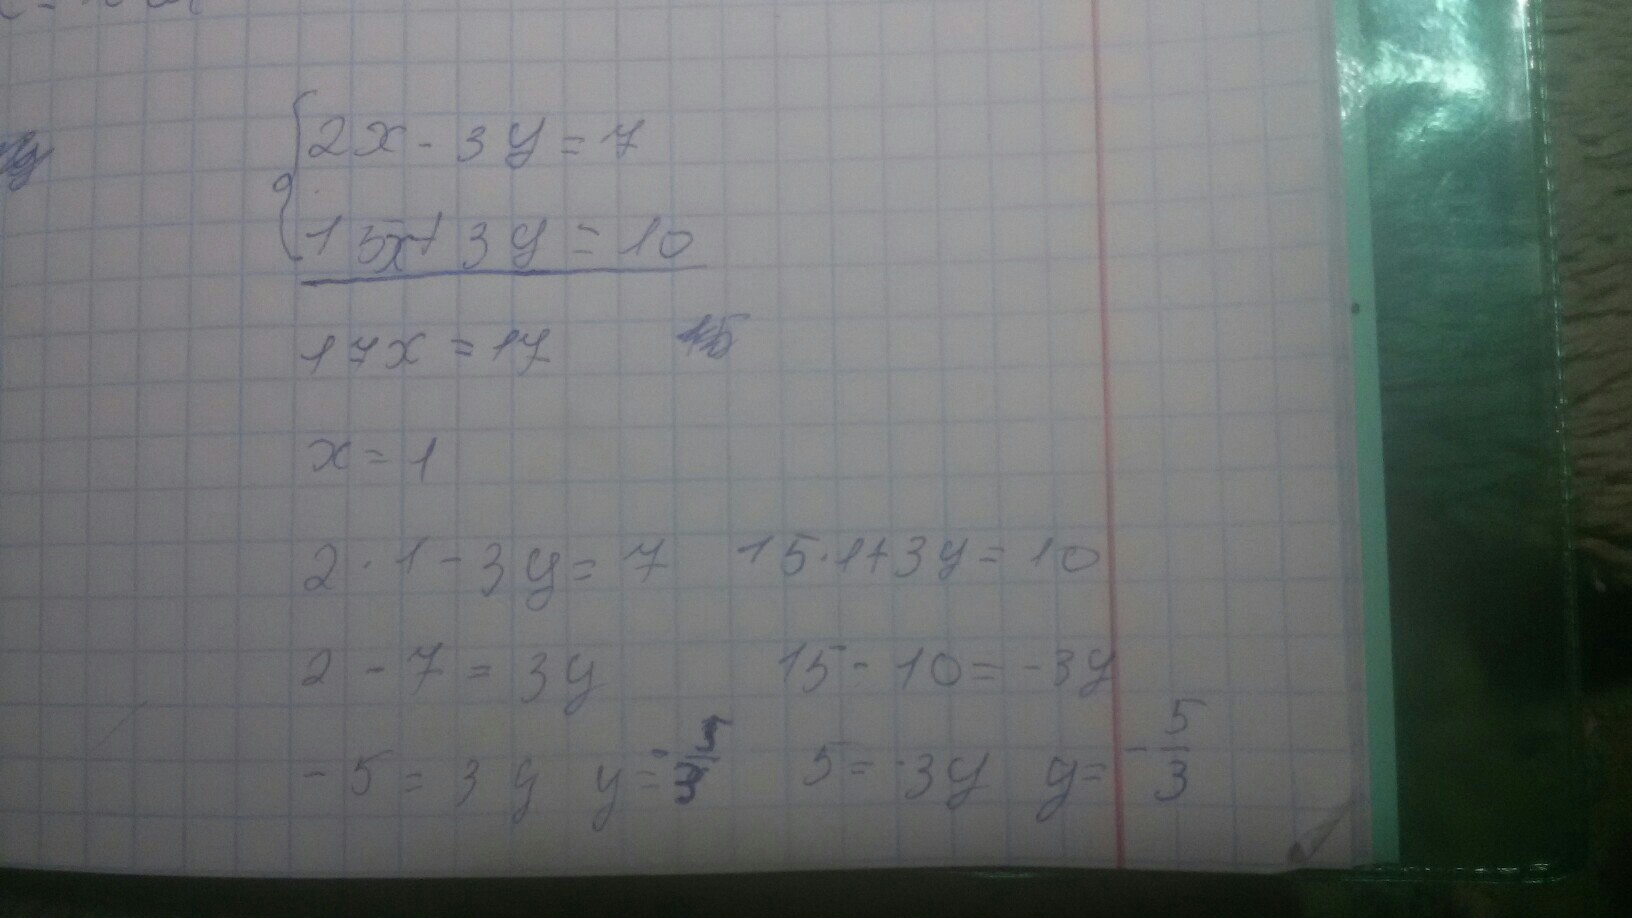 2x - 3y = 7
15x + 3y = 10
17x = 17
x = 1
2 · 1 - 3y = 7 15 · 1 + 3y = 10
2 - 7 = 3y 15 - 10 = -3y
-5 = 3y y = 5 = -3y y = -5/3